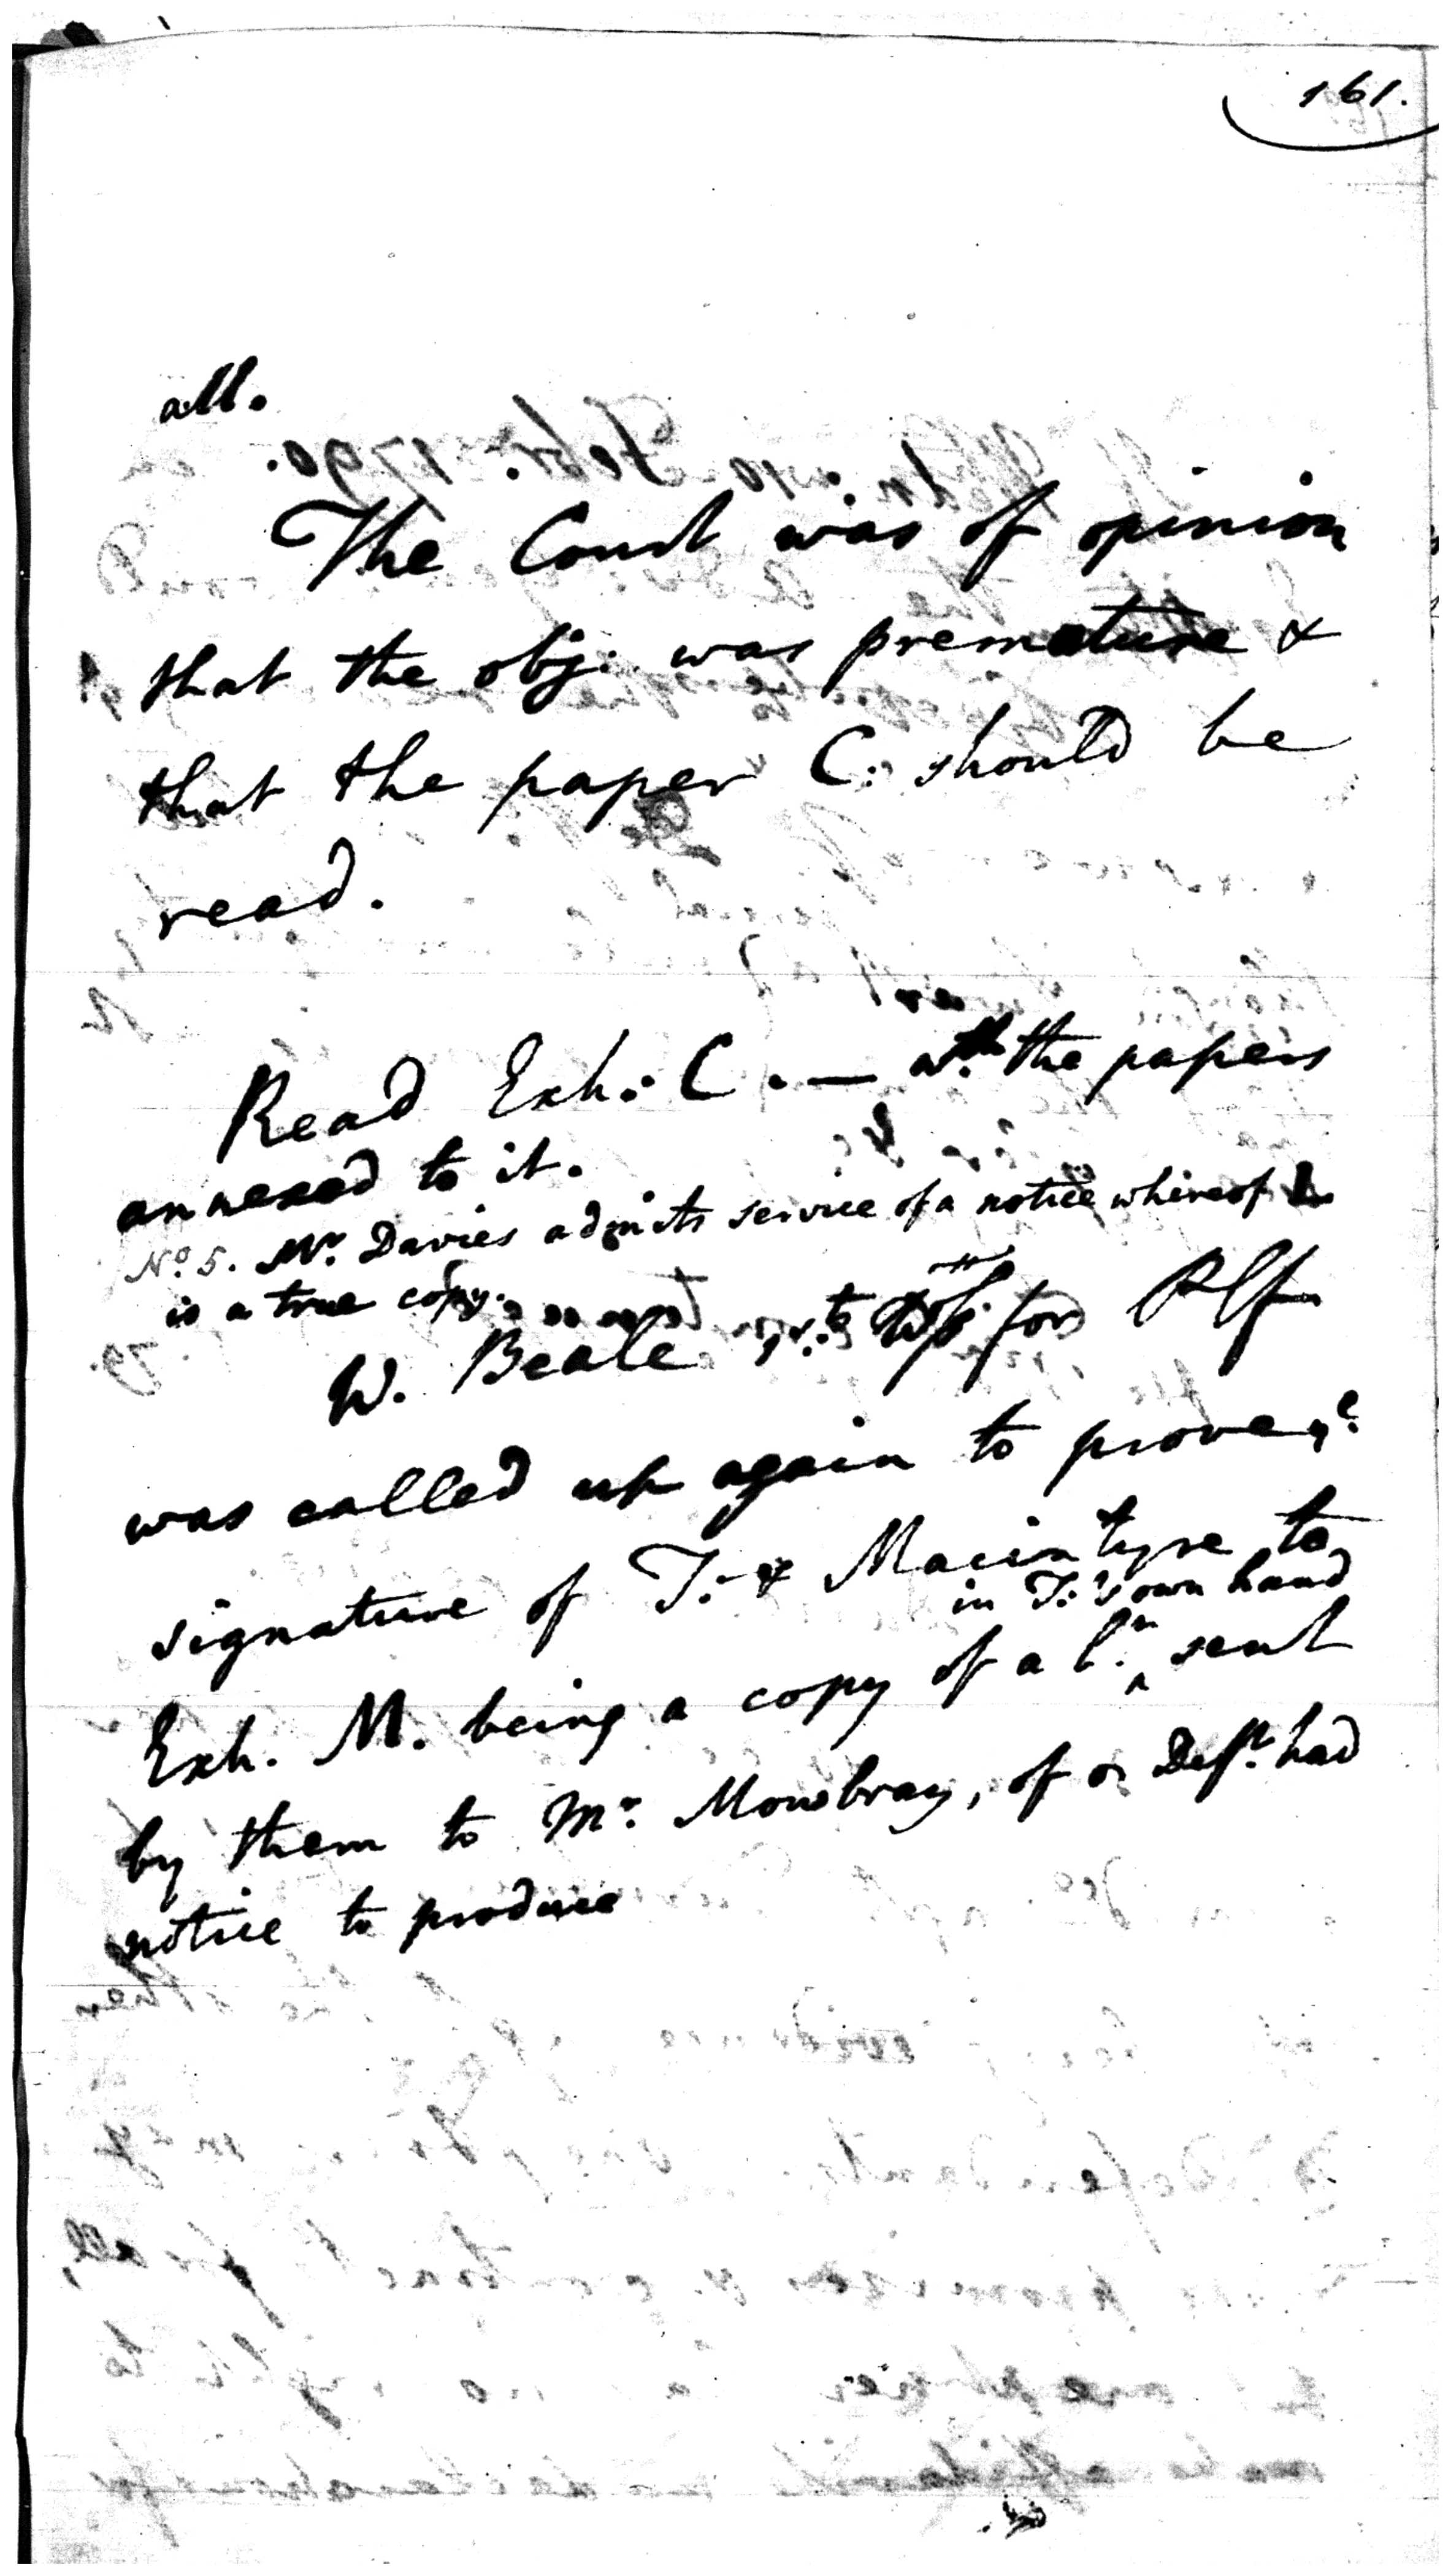 161.
all.
The Court was of opinion
that the obj: was premature &
that the paper C: should be
read.
Read Exh: C. — wth the papers
annexed to it.
No. 5. Mr. Davies admits service of a notice whereof
is a true copy.
W. Beale for Plf
was called up again to prove ye
signature of T: & Macintyre to
in T:'s own hand
Exh. M. being a copy of a lr. sent
by them to Mr. Mowbray, of Deft. had
notice to produce